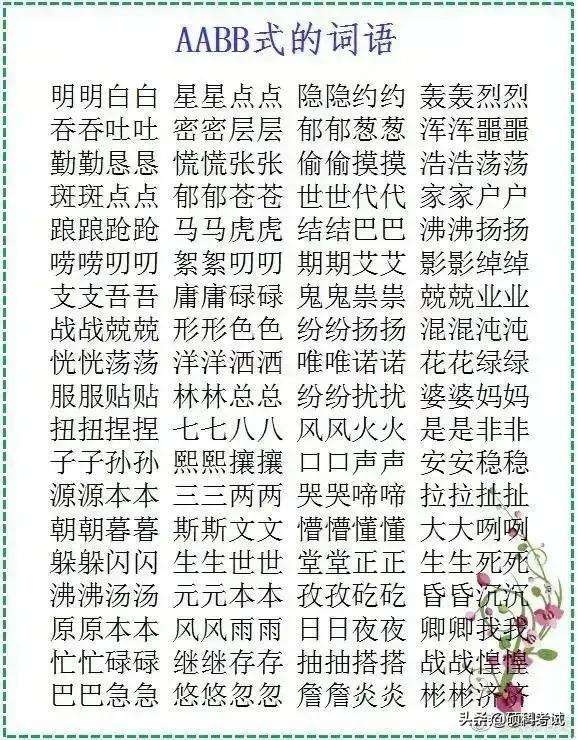 AABB式的词语
明明白白 星星点点 隐隐约约 轰轰烈烈
吞吞吐吐 密密层层 郁郁葱葱 浑浑噩噩
勤勤恳恳 慌慌张张 偷偷摸摸 浩浩荡荡
斑斑点点 郁郁苍苍 世世代代 家家户户
踉踉跄跄 马马虎虎 结结巴巴 沸沸扬扬
唠唠叨叨 絮絮叨叨 期期艾艾 影影绰绰
支支吾吾 庸庸碌碌 鬼鬼祟祟 兢兢业业
战战兢兢 形形色色 纷纷扬扬 混混沌沌
恍恍荡荡 洋洋洒洒 唯唯诺诺 花花绿绿
服服贴贴 林林总总 纷纷扰扰 婆婆妈妈
扭扭捏捏 七七八八 风风火火 是是非非
子子孙孙 熙熙攘攘 口口声声 安安稳稳
源源本本 三三两两 哭哭啼啼 拉拉扯扯
朝朝暮暮 斯斯文文 懵懵懂懂 大大咧咧
躲躲闪闪 生生世世 堂堂正正 生生死死
沸沸汤汤 元元本本 孜孜矻矻 昏昏沉沉
原原本本 风风雨雨 日日夜夜 卿卿我我
忙忙碌碌 继继存存 抽抽搭搭 战战惶惶
巴巴急急 悠悠忽忽 詹詹炎炎 彬彬济济
头条@硕科考试